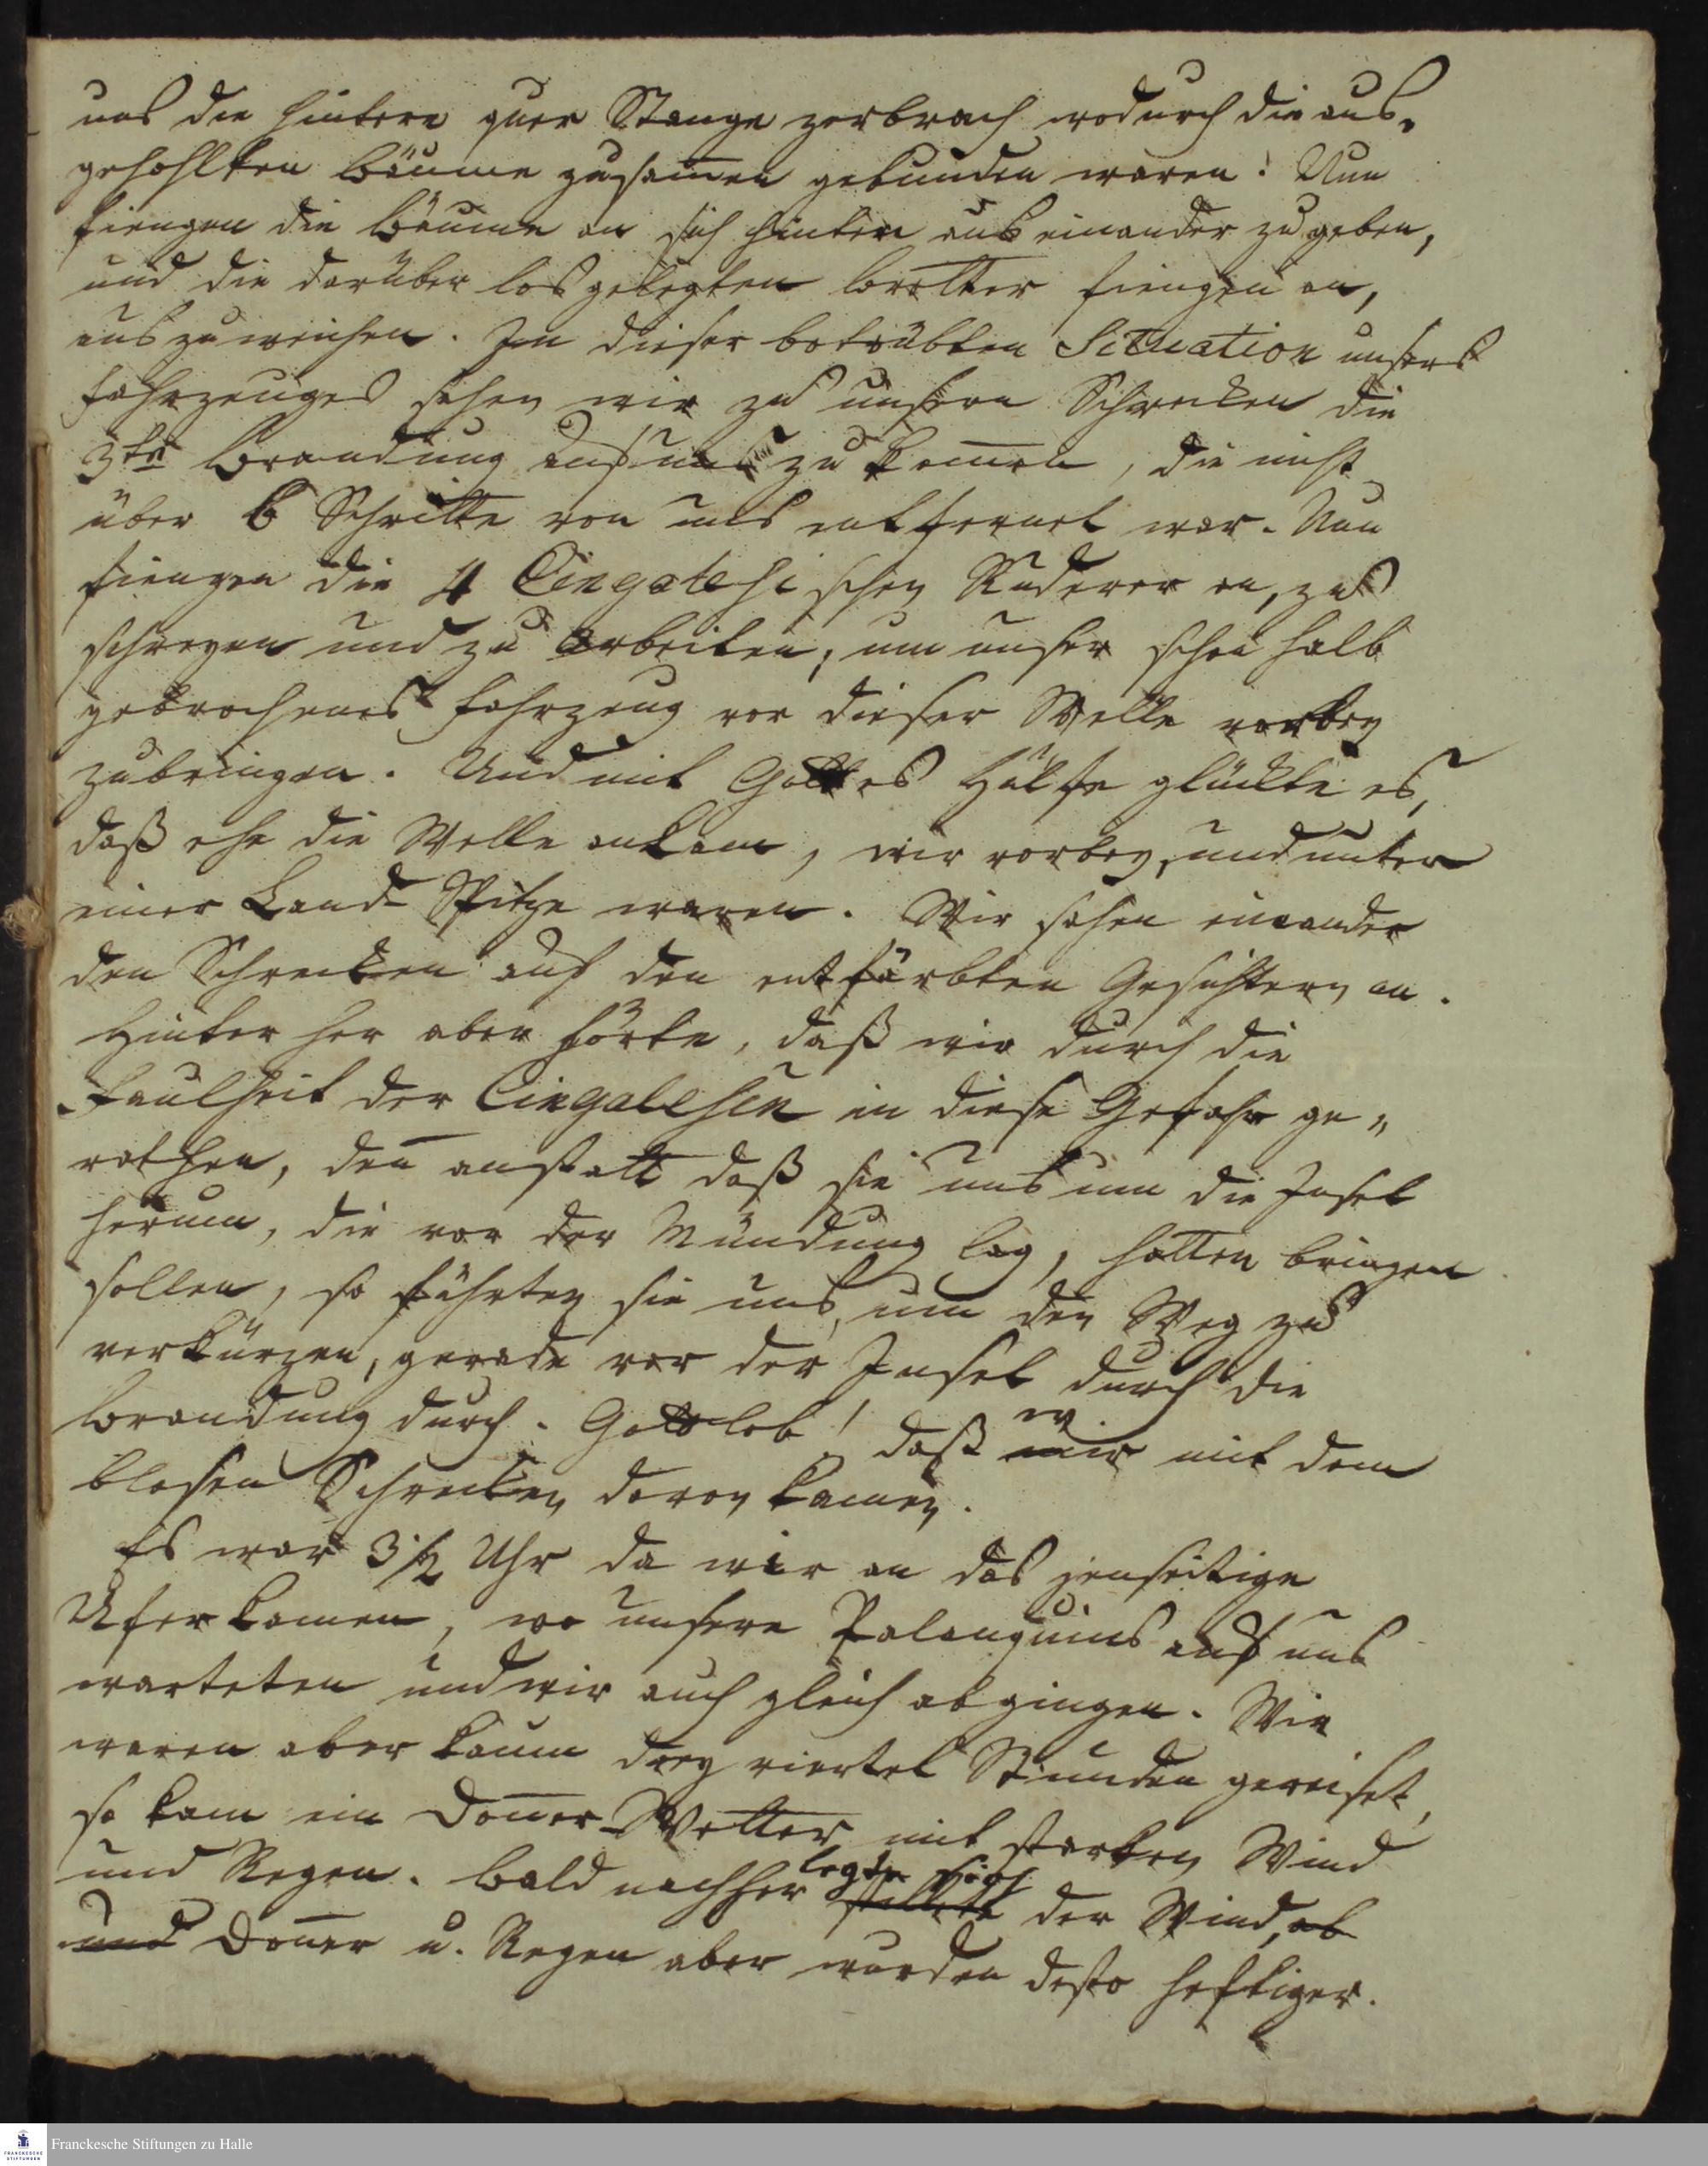 uns die hintere quer Stange zerbrach wodurch die aus„
gehohlten Bäume zusam̅en gebunden waren: Nun
fiengen die Bäume an sich hinten aus einander zu geben,
und die darüber los gelegten Bretter fiengen an,
aus zu weichen. In dieser betrübten Situation unsers
Fahrzeuges sahen wir zu unsern Schrecken die
3te Brandung auf uns zu kom̅en, die nicht
über 6 Schritte von uns entfernet war. Nun
fiengen die 4 Cingalesischen Ruderer an, zu
schreyen und zu arbeiten, um unser schon halb
gebrochenes Fahrzeug vor dieser Welle vorbey
zubringen. Und mit Gottes Hülfe glückte es,
daß ehe die Welle ankam, wir vorbey, und unter
einer Land-Spitze waren. Wir sahen einander
den Schrecken auf den entfärbten Gesichtern an.
Hinter her aber hörte, daß wir durch die
Faulheit der Cingalesen in diese Gefahr ge„
rathen, den̅ anstatt daß sie uns um die Insel
herum, die vor der Mündung lag, hatten bringen
sollen, so führten sie uns, um den Weg zu
verkürzen, gerade vor der Insel durch die
Brandung durch. Gottlob! daß wir mit dem
blosen Schrecken davon kamen.
Es war 3 1/2 Uhr da wir an das jenseitige
Ufer kamen, wo unsere Palanquins auf uns
warteten und wir auch gleich abgingen. Wir
waren aber kaum drey viertel Stunden gereiset,
so kam ein Don̅er-Wetter mit starken Wind
und Regen. Bald nachher legte sich stillete der Wind, ab
und Don̅er u. Regen aber wurden desto heftiger.
Franckesche Stiftungen zu Halle
FRANCKESCHE
STIFTUNGEN